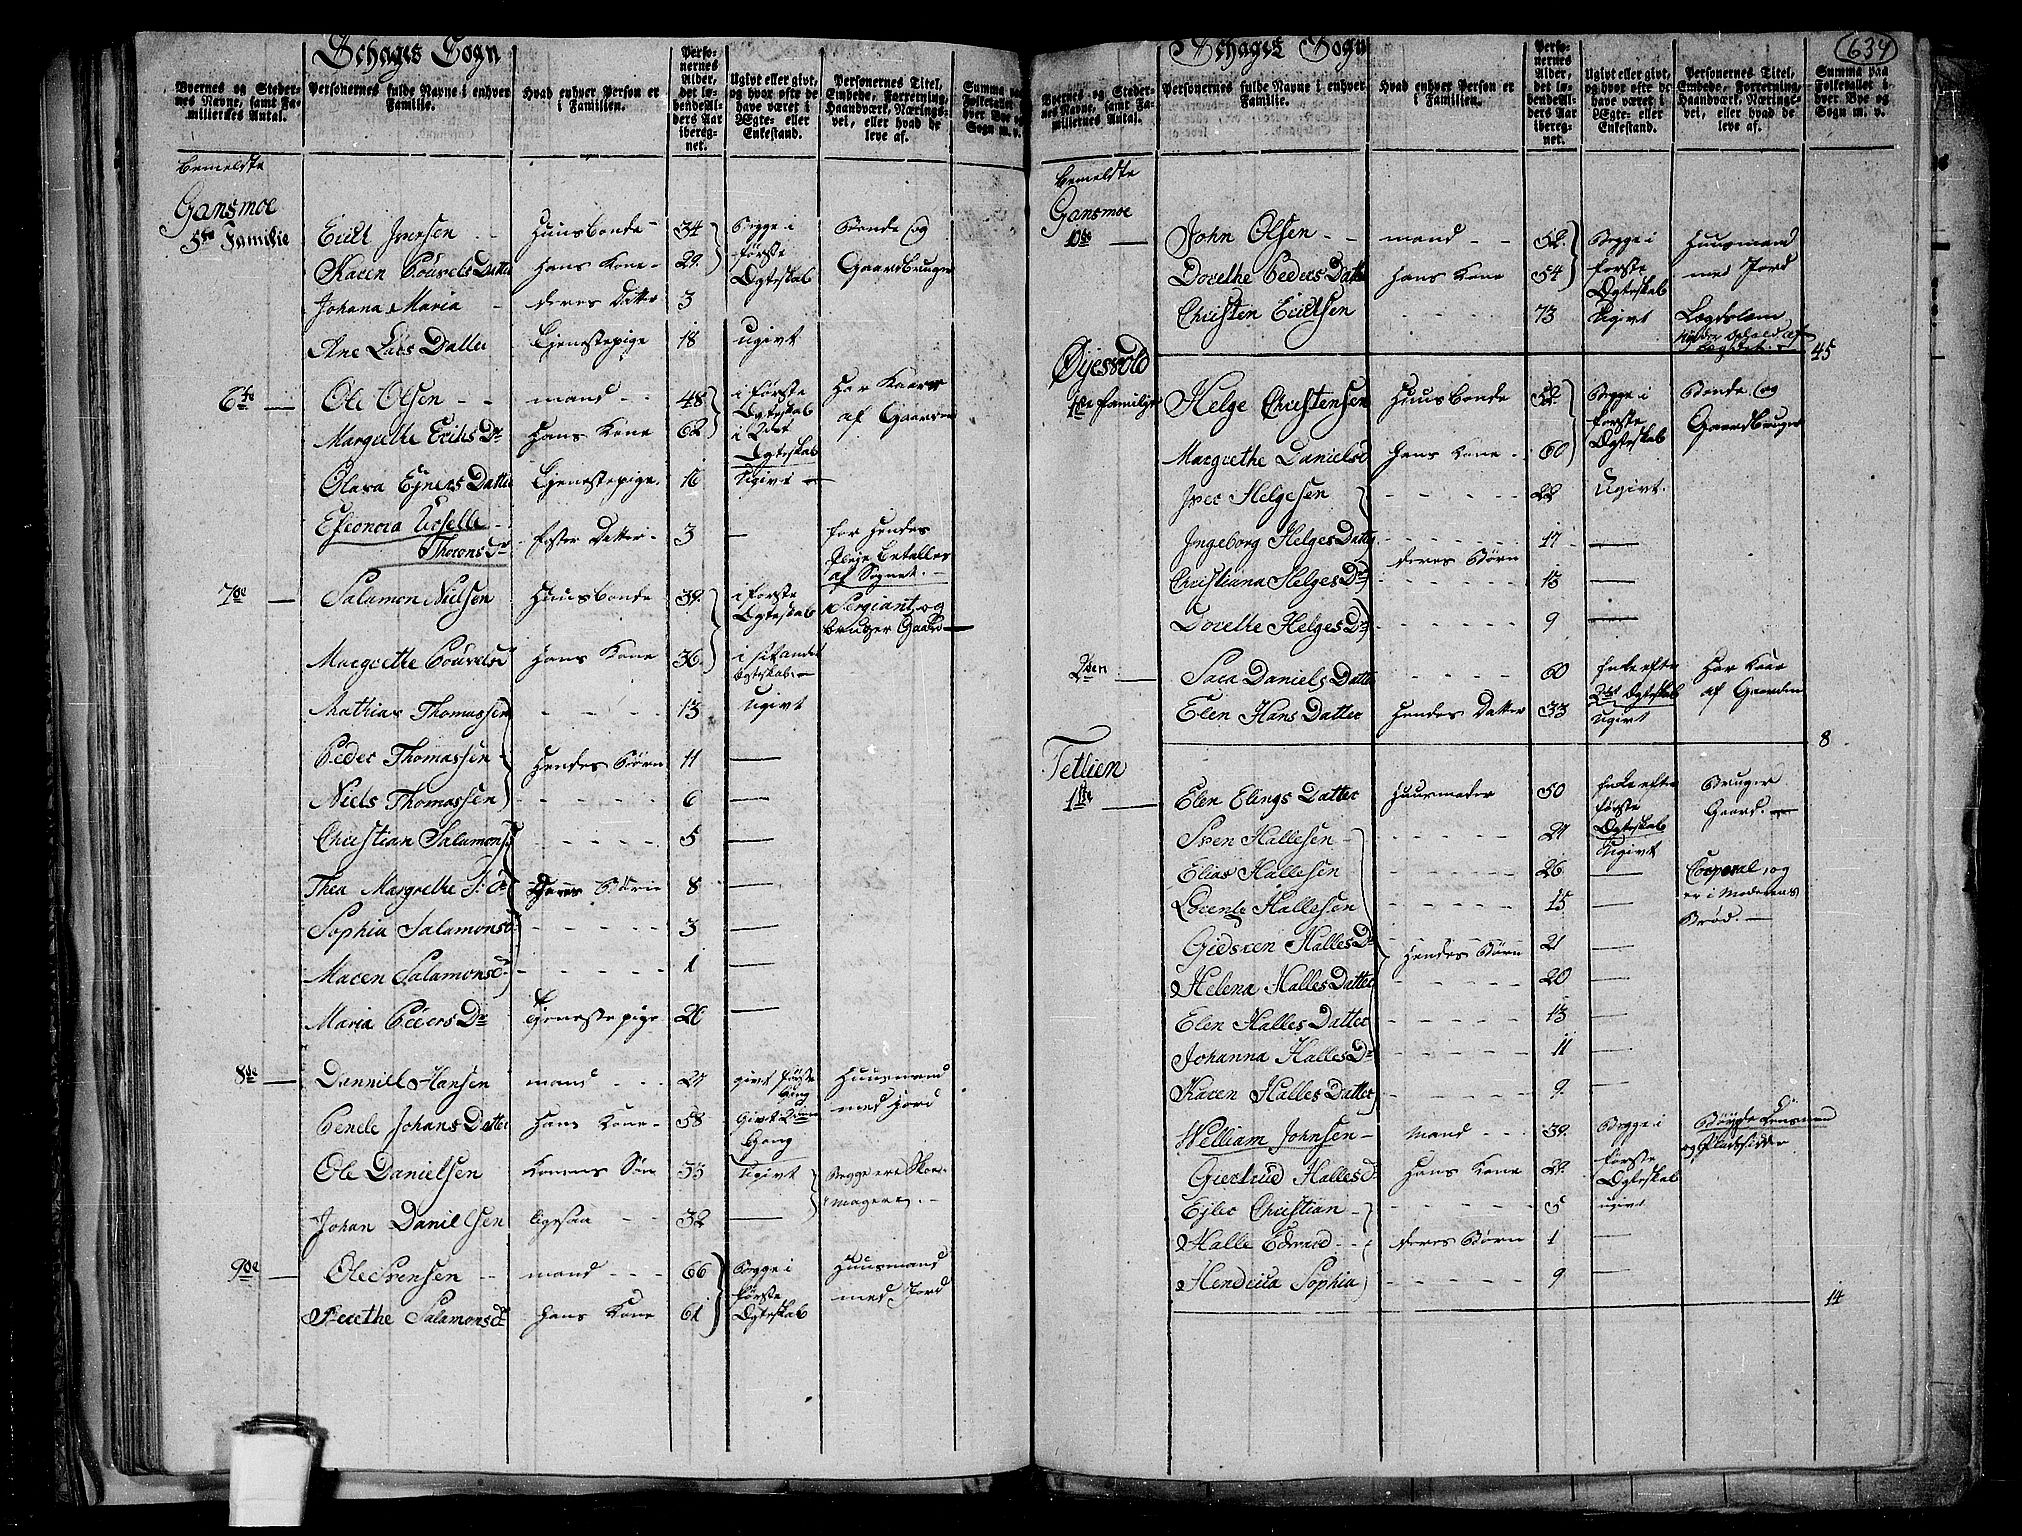 Schages Sogn
Byernes og Steder-
nes Navne, samt Fa-
miliernes Antal.
Personernes fulde Navne i enhver
Familie.
Hvad enhver Person er
i Familien.
Perso-
nernes
Alder,
det lø-
bende Al-
ders Aar
ibereg-
net.
Ugivt eller givt,
og hvor ofte de
have været i
Ægte- eller
Enkestand.
Personernes Titel,
Embede, Forretning,
Haandværk, Nærings-
vei, eller hvad de
leve af.
Bemeldte
Gansmoe
5te Familie Eliel Iversen Huusbonde 34 Begge i første Ægteskab Bonde og Gaardbruger
Karen Povels Datter Hans Kone 29
Johana Maria deres Datter 3
Ane Lars Datter Tjenestepige 18 ugivt
6te Ole Olsen mand 48 i første Ægteskab Har Kaar af Gaarden
Margrethe Erichs Dr Hans Kone 62 i 2det Ægteskab
Olava Ejners Datter Tjenestepige 16 Ugivt
Eleonora Thorons Dr foster Datter 3 — for hendes Pleje betalles af Sognet.
7de Salamon Nielsen Huusbonde 39 i første Ægteskab Sergiant og bruger Gaard
Margrethe Povelsd Hans Kone 36 i andet Ægteskab
Mathias Thomassen 13 ugivt
Peder Thomassen Hendes Børn 11 —
Niels Thomassen 6 —
Christian Salamons 5 —
Thea Margrethe S. D Deres Børn 8 —
Sophia Salamonsd 3 —
Maren Salamonsd 1 —
Maria Peders Dr Tjenestepige 20 —
8de Danniel Hansen mand 27 givt første Gang Huusmand med Jord
Penele Johans Datter Hans Kone 58 Givt 2den Gang
Ole Danielsen Konens Søn 33 Ugivt Begge ere Skoemagere.
Johan Danielsen ligesaa 32 —
9de Ole Svensen mand 66 Begge i første Ægteskab Huusmand med Jord
Berethe Salamonsd Hans Kone 61
637
Schages Sogn
Byernes og Steder-
nes Navne, samt Fa-
miliernes Antal.
Personernes fulde Navne i enhver
Familie.
Hvad enhver Person er
i Familien.
Perso-
nernes
Alder,
det lø-
bende Al-
ders Aar
ibereg-
net.
Ugivt eller givt,
og hvor ofte de
have været i
Ægte- eller
Enkestand.
Personernes Titel,
Embede, Forretning,
Haandværk, Nærings-
vei, eller hvad de
leve af.
Summa paa
Folketallet i
hver Bye og
Sogn m. v.
Bemeldte
Gansmoe
10de John Olsen mand 52 Begge i første Ægteskab Huusmand med Jord
Dorethe Peders Datter Hans Kone 54
Christen Elielsen 73 Ugivt Lægdslem nyder ophold af Lægdet. 45
Øjesvold
1ste Familie Helge Christensen Huusbonde 52 Begge i første Ægteskab Bonde og Gaardbruger
Margrethe Danielsd Hans Kone 60
Iver Helgesen 22 Ugivt.
Ingeborg Helges Datter deres Børn 17 —
Christiana Helges Dr 13 —
Dorethe Helges Dr 9 —
2den Sara Daniels Datter 60 Enke efter 2det Ægteskab Har Kaar af Gaarden
Elen Hans Datter Hendes Datter 33 Ugivt
8
Tetlien
1ste Elen Elings Datter Huusmoder 50 Enke efter første Ægteskab Bruger Gaard.
Sven Hallesen 27 Ugivt
Elias Hallesen 26 — Corporal, og er i Moderens Brød.
Lorents Hallesen 15 —
Gidsken Halles Dr Hendes Børn 21 —
Helena Halles Datter 20 —
Elen Halles Datter 13 —
Johanna Halles Dr 11 —
Karen Halles Datter 9 —
Welliam Johnsen Mand 39 Begge i første Ægteskab Bøygde Lensmand og Pladsesidder
Giertrud Halles d Hans Kone 29
Ejler Christian 5 ugivt
Halle Edvard deres Børn 1 —
Hendrica Sophia 9 —
14